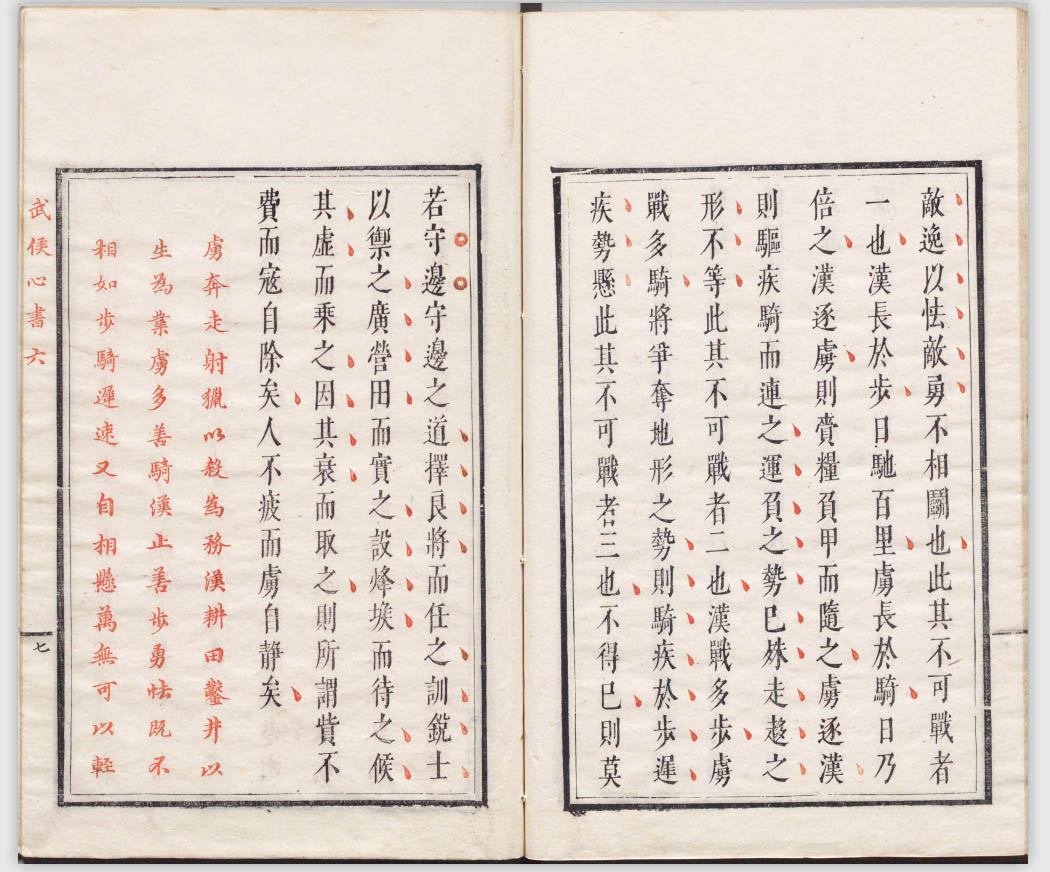 敵逸以怯敵勇不相鬬也此其不可戰者
一也漢長於步日馳百里虜長於騎日乃
倍之漢逐虜則賫糧負甲而隨之虜逐漢
則驅疾騎而連之運負之勢巳殊走趍之
形不等此其不可戰者二也漢戰多步虜
戰多騎將爭奪地形之勢則騎疾於步遲
疾勢懸此其不可戰者三也不得巳則莫
若守邊守邊之道擇良將而任之訓銳士
以禦之廣營田而實之設烽堠而待之候
其虛而乘之因其衰而取之則所謂貲不
費而寇自除矣人不疲而虜自靜矣
虜奔走射獵以殺爲務漢耕田鑿井以
生為業虜多善騎漢止善步勇怯既不
相如步騎遲速又自相懸萬無可以輕
武侯心書六
七